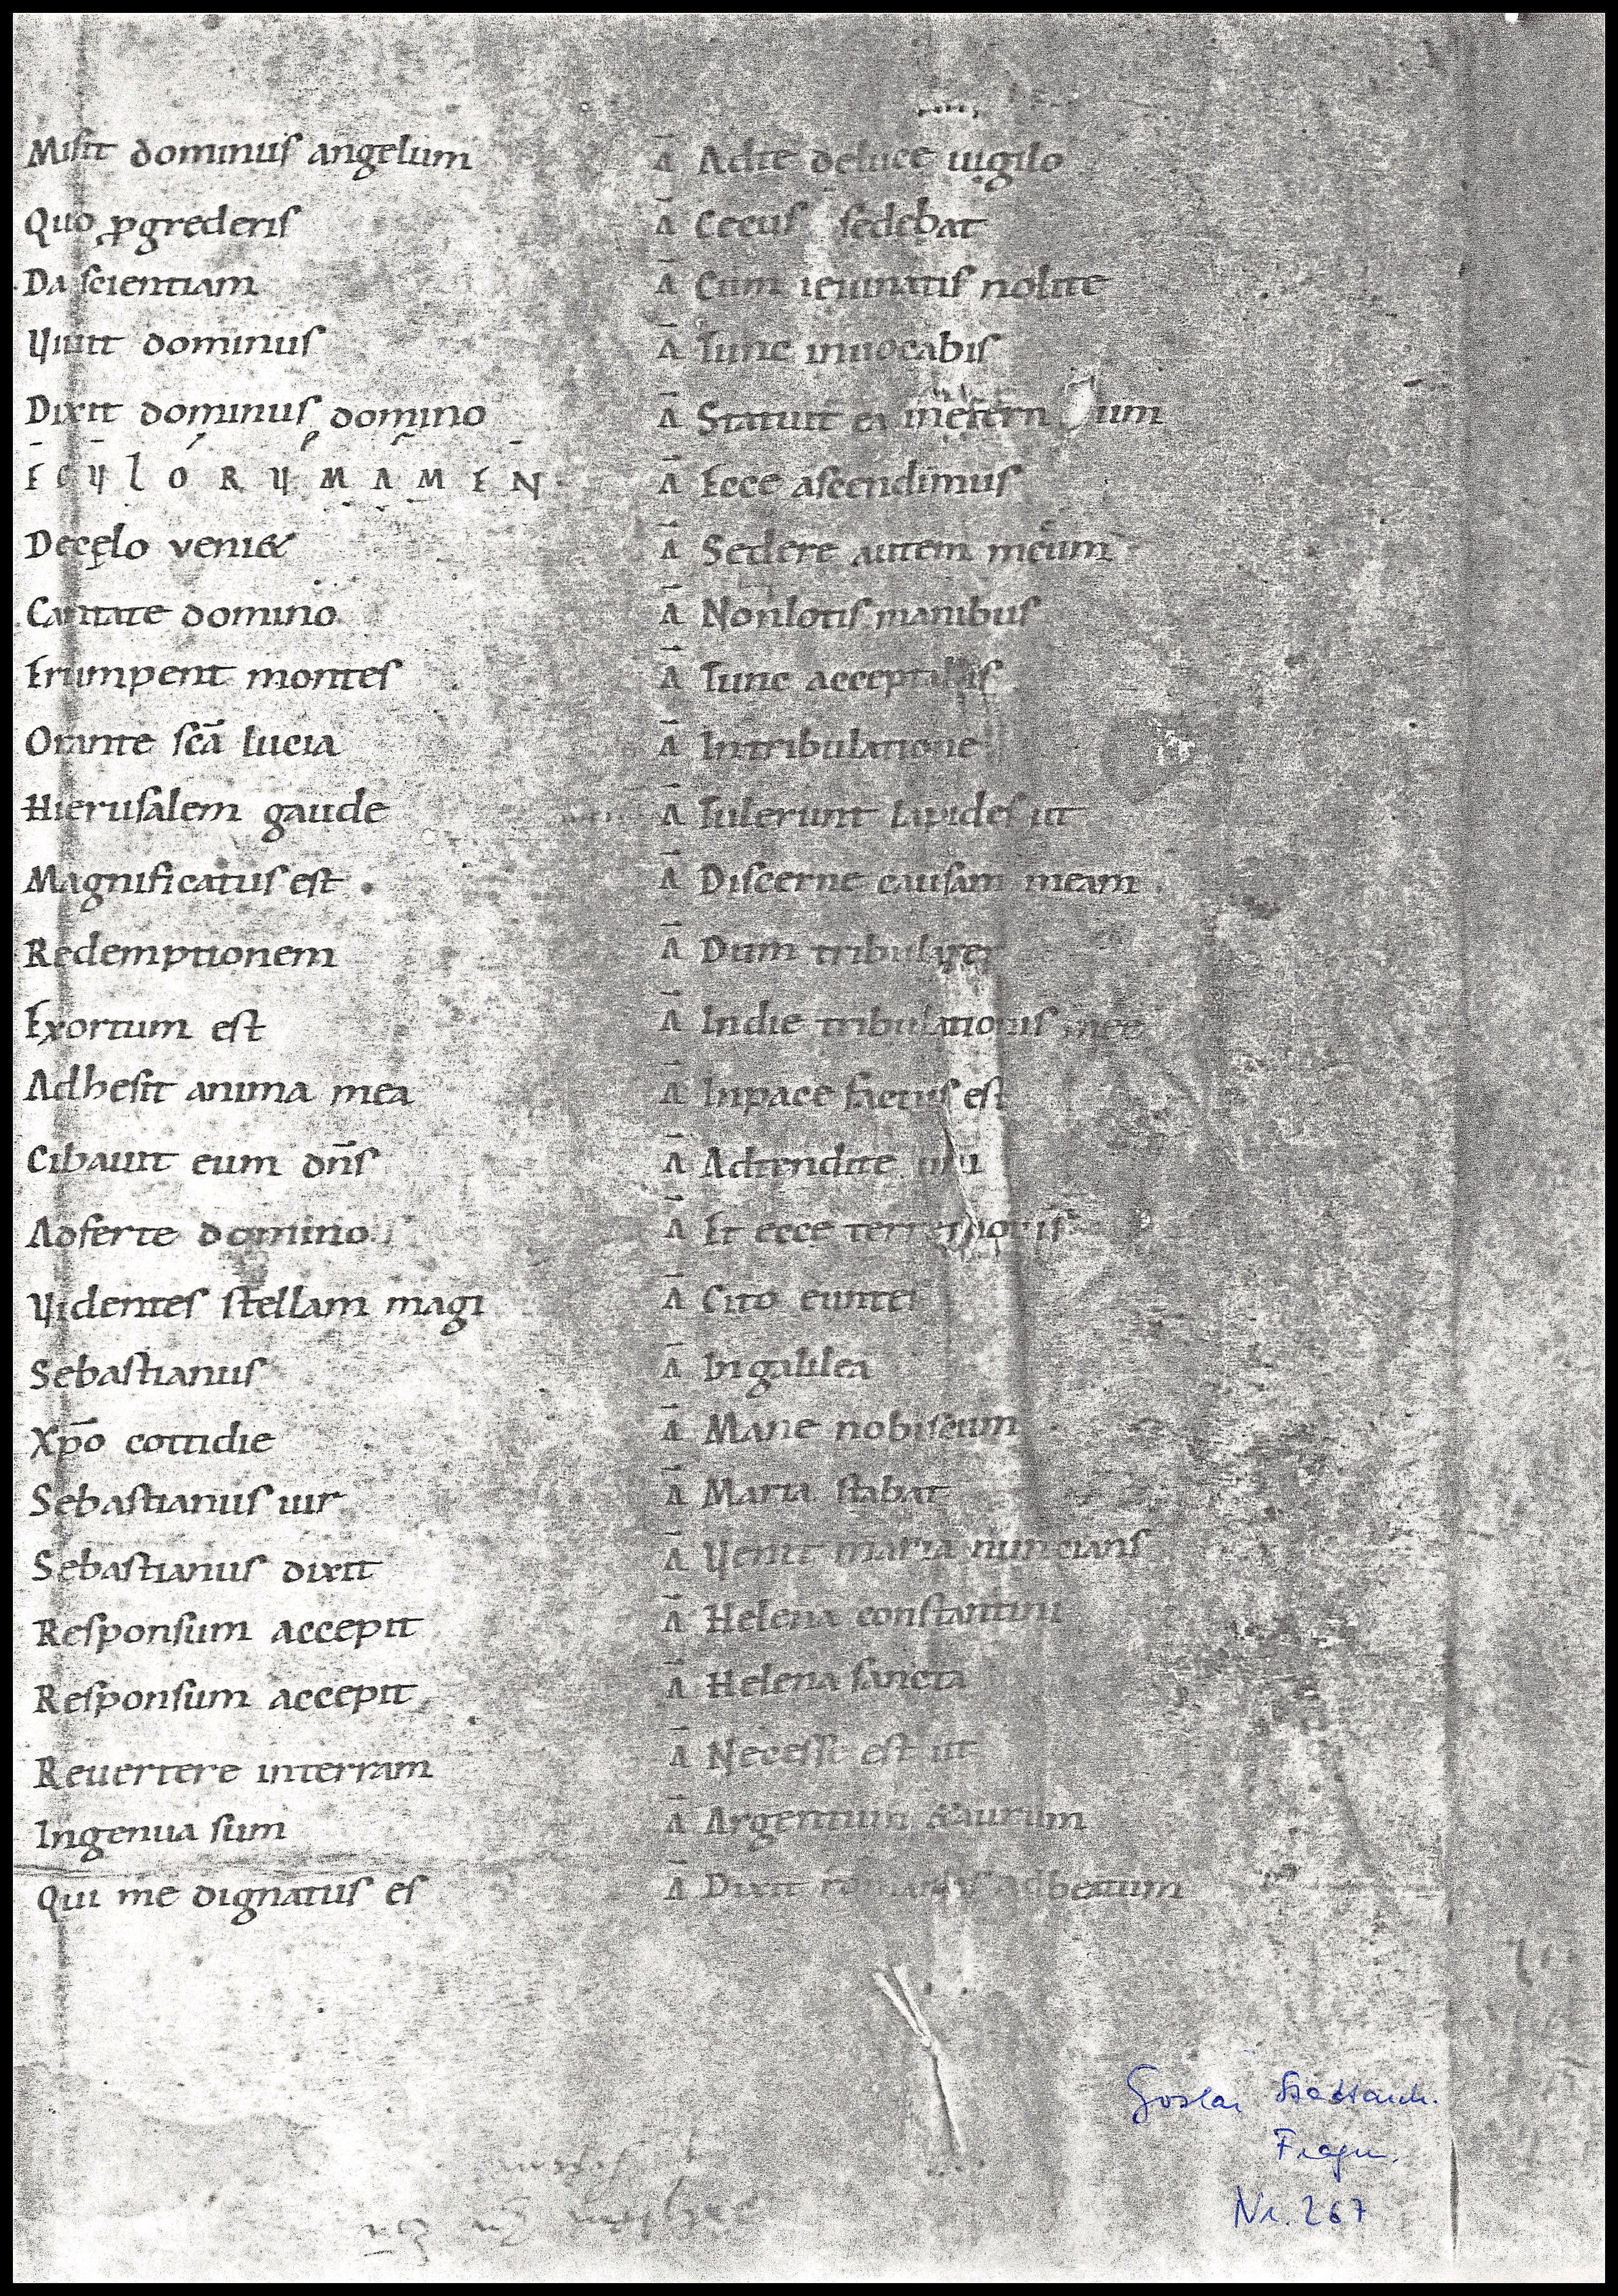 Misit dominus angelum
Quo ꝓgrederis
Da scientiam
Uiuit dominus
Dixit dominus domino
E C U L O R U M A M E N
De cęlo veni&
Cantate domino
Erumpent montes
Orante sc̄a lucia
Hierusalem gaude
Magnificatus est
Redemptionem
Exortum est
Adhesit anima mea
Cibauit eum dn̄s
Adferte domino
Uidentes stellam magi
Sebastianus
Xp̄o cottidie
Sebastianus uir
Sebastianus dixit
Responsum accepit
Responsum accepit
Reuertere interram
Ingenua sum
Qui me dignatus es
Ā Adte deluce uigilo
Ā Cecus sedebat
Ā Cum ieiunatis nolite
Ā Tunc inuocabis
Ā Statuit ea inetern um
Ā Ecce ascendimus
Ā Sedere autem mecum
Ā Nonlotis manibus
Ā Tunc acceptabis
Ā Intribulatione
Ā Tulerunt lapides ut
Ā Discerne causam meam
Ā Dum tribularer
Ā Indie tribulationis mee
Ā Inpace factus est
Ā Adtendite
Ā Et ecce terremotus
Ā Cito euntes
Ā Ingalilea
Ā Mane nobiscum
Ā Maria stabat
Ā Uenit maria nuncians
Ā Helena constantini
Ā Helena sancta
Ā Necesse est ut
Ā Argentum &aurum
Ā Dixit adbeatum
Goslar Stadtarch.
Fragm.
Nr. 267